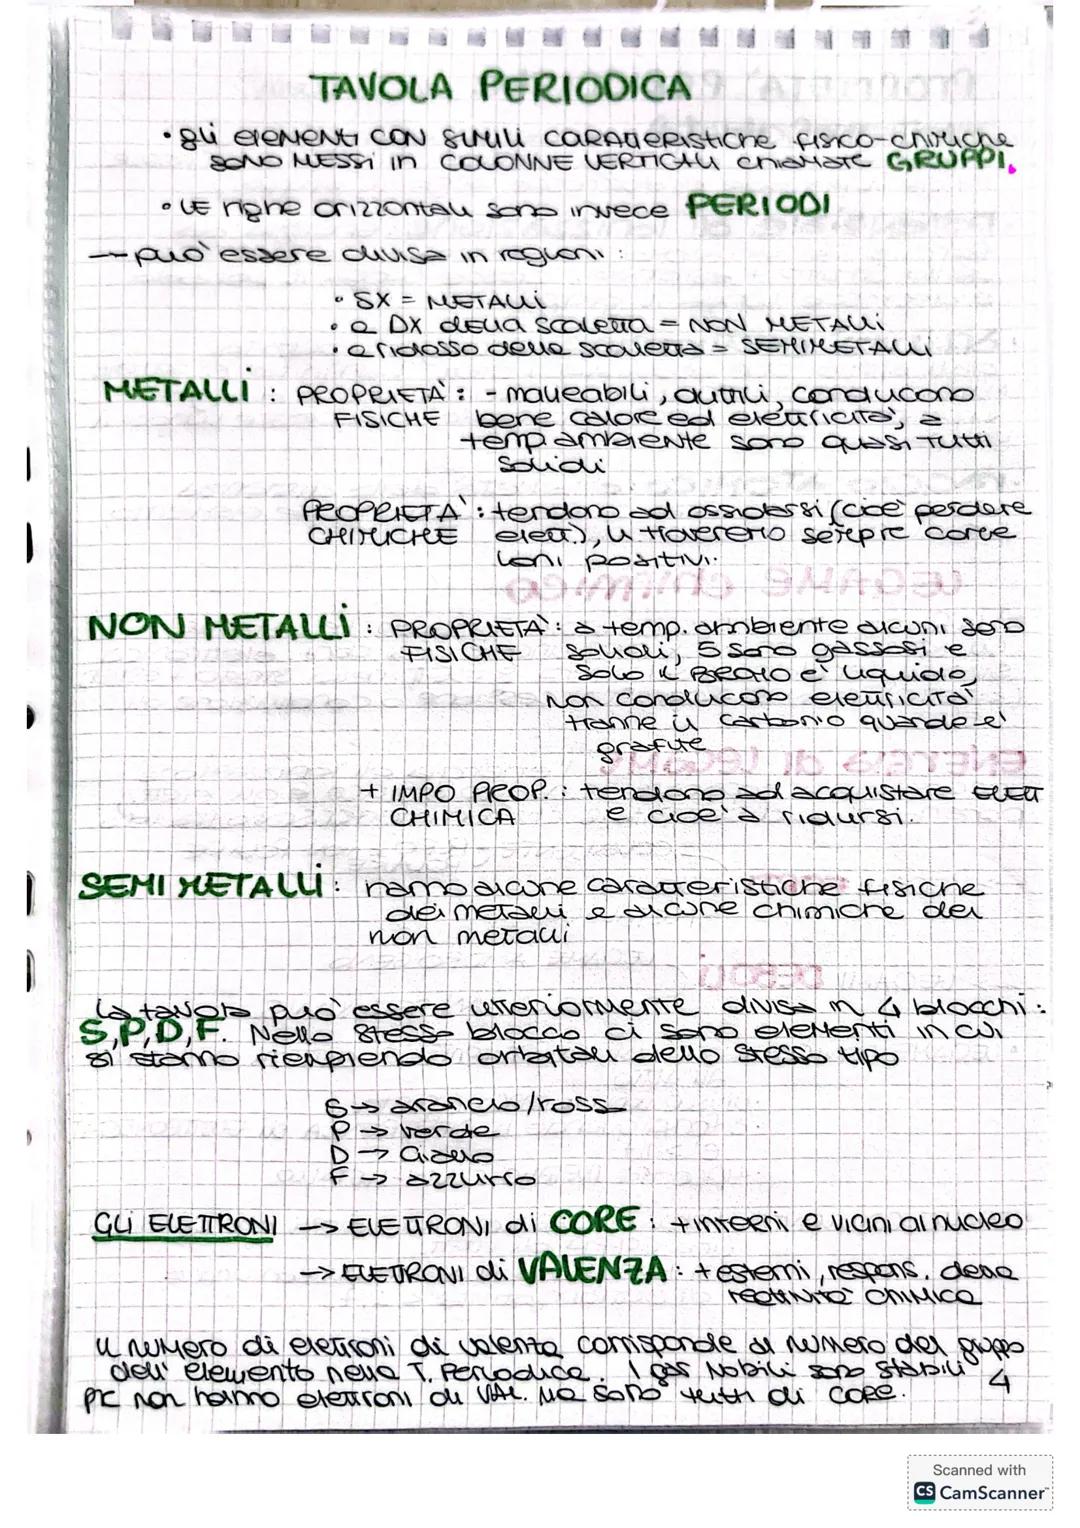 TAVOLA PERIODICA
• gli elementi con simili caratteristiche fisico-chimiche
sono messi in colonne verticali chiamate GRUPPI.
• Le righe orizzontali sono invece PERIODI
— può essere divisa in regioni:
• SX = METALLI
• a DX della scaletta = NON METALLI
• a ridosso della scaletta = SEMIMETALLI
METALLI : PROPRIETÀ : - malleabili, duttili, conducono
FISICHE bene calore ed elettricità, a
temp. ambiente sono quasi tutti
solidi
PROPRIETÀ : tendono ad ossidarsi (cioè perdere
CHIMICHE elett.), li troveremo sempre come
ioni positivi.
NON METALLI : PROPRIETÀ : a temp. ambiente alcuni sono
FISICHE solidi, 5 sono gassosi e
solo il BROMO è liquido,
non conducono elettricità
tranne il carbonio quando è
grafite
+ IMPO PROP. : tendono ad acquistare ELETT
CHIMICA e cioè a ridursi.
SEMI METALLI : hanno alcune caratteristiche fisiche
dei metalli e alcune chimiche dei
non metalli
La tavola può essere ulteriormente divisa in 4 blocchi:
S,P,D,F. Nello stesso blocco ci sono elementi in cui
si stanno riempiendo orbitali dello stesso tipo
S → arancio/rosso
P → verde
D → giallo
F → azzurro
GLI ELETTRONI → ELETTRONI di CORE : + interni e vicini al nucleo
→ ELETTRONI di VALENZA : + esterni, respons. della
reattività chimica
il numero di elettroni di valenza corrisponde al numero del gruppo
dell'elemento nella T. Periodica. I gas Nobili sono stabili
pk non hanno elettroni di VAL. ma sono tutti di core.
4
Scanned with
CS CamScanner